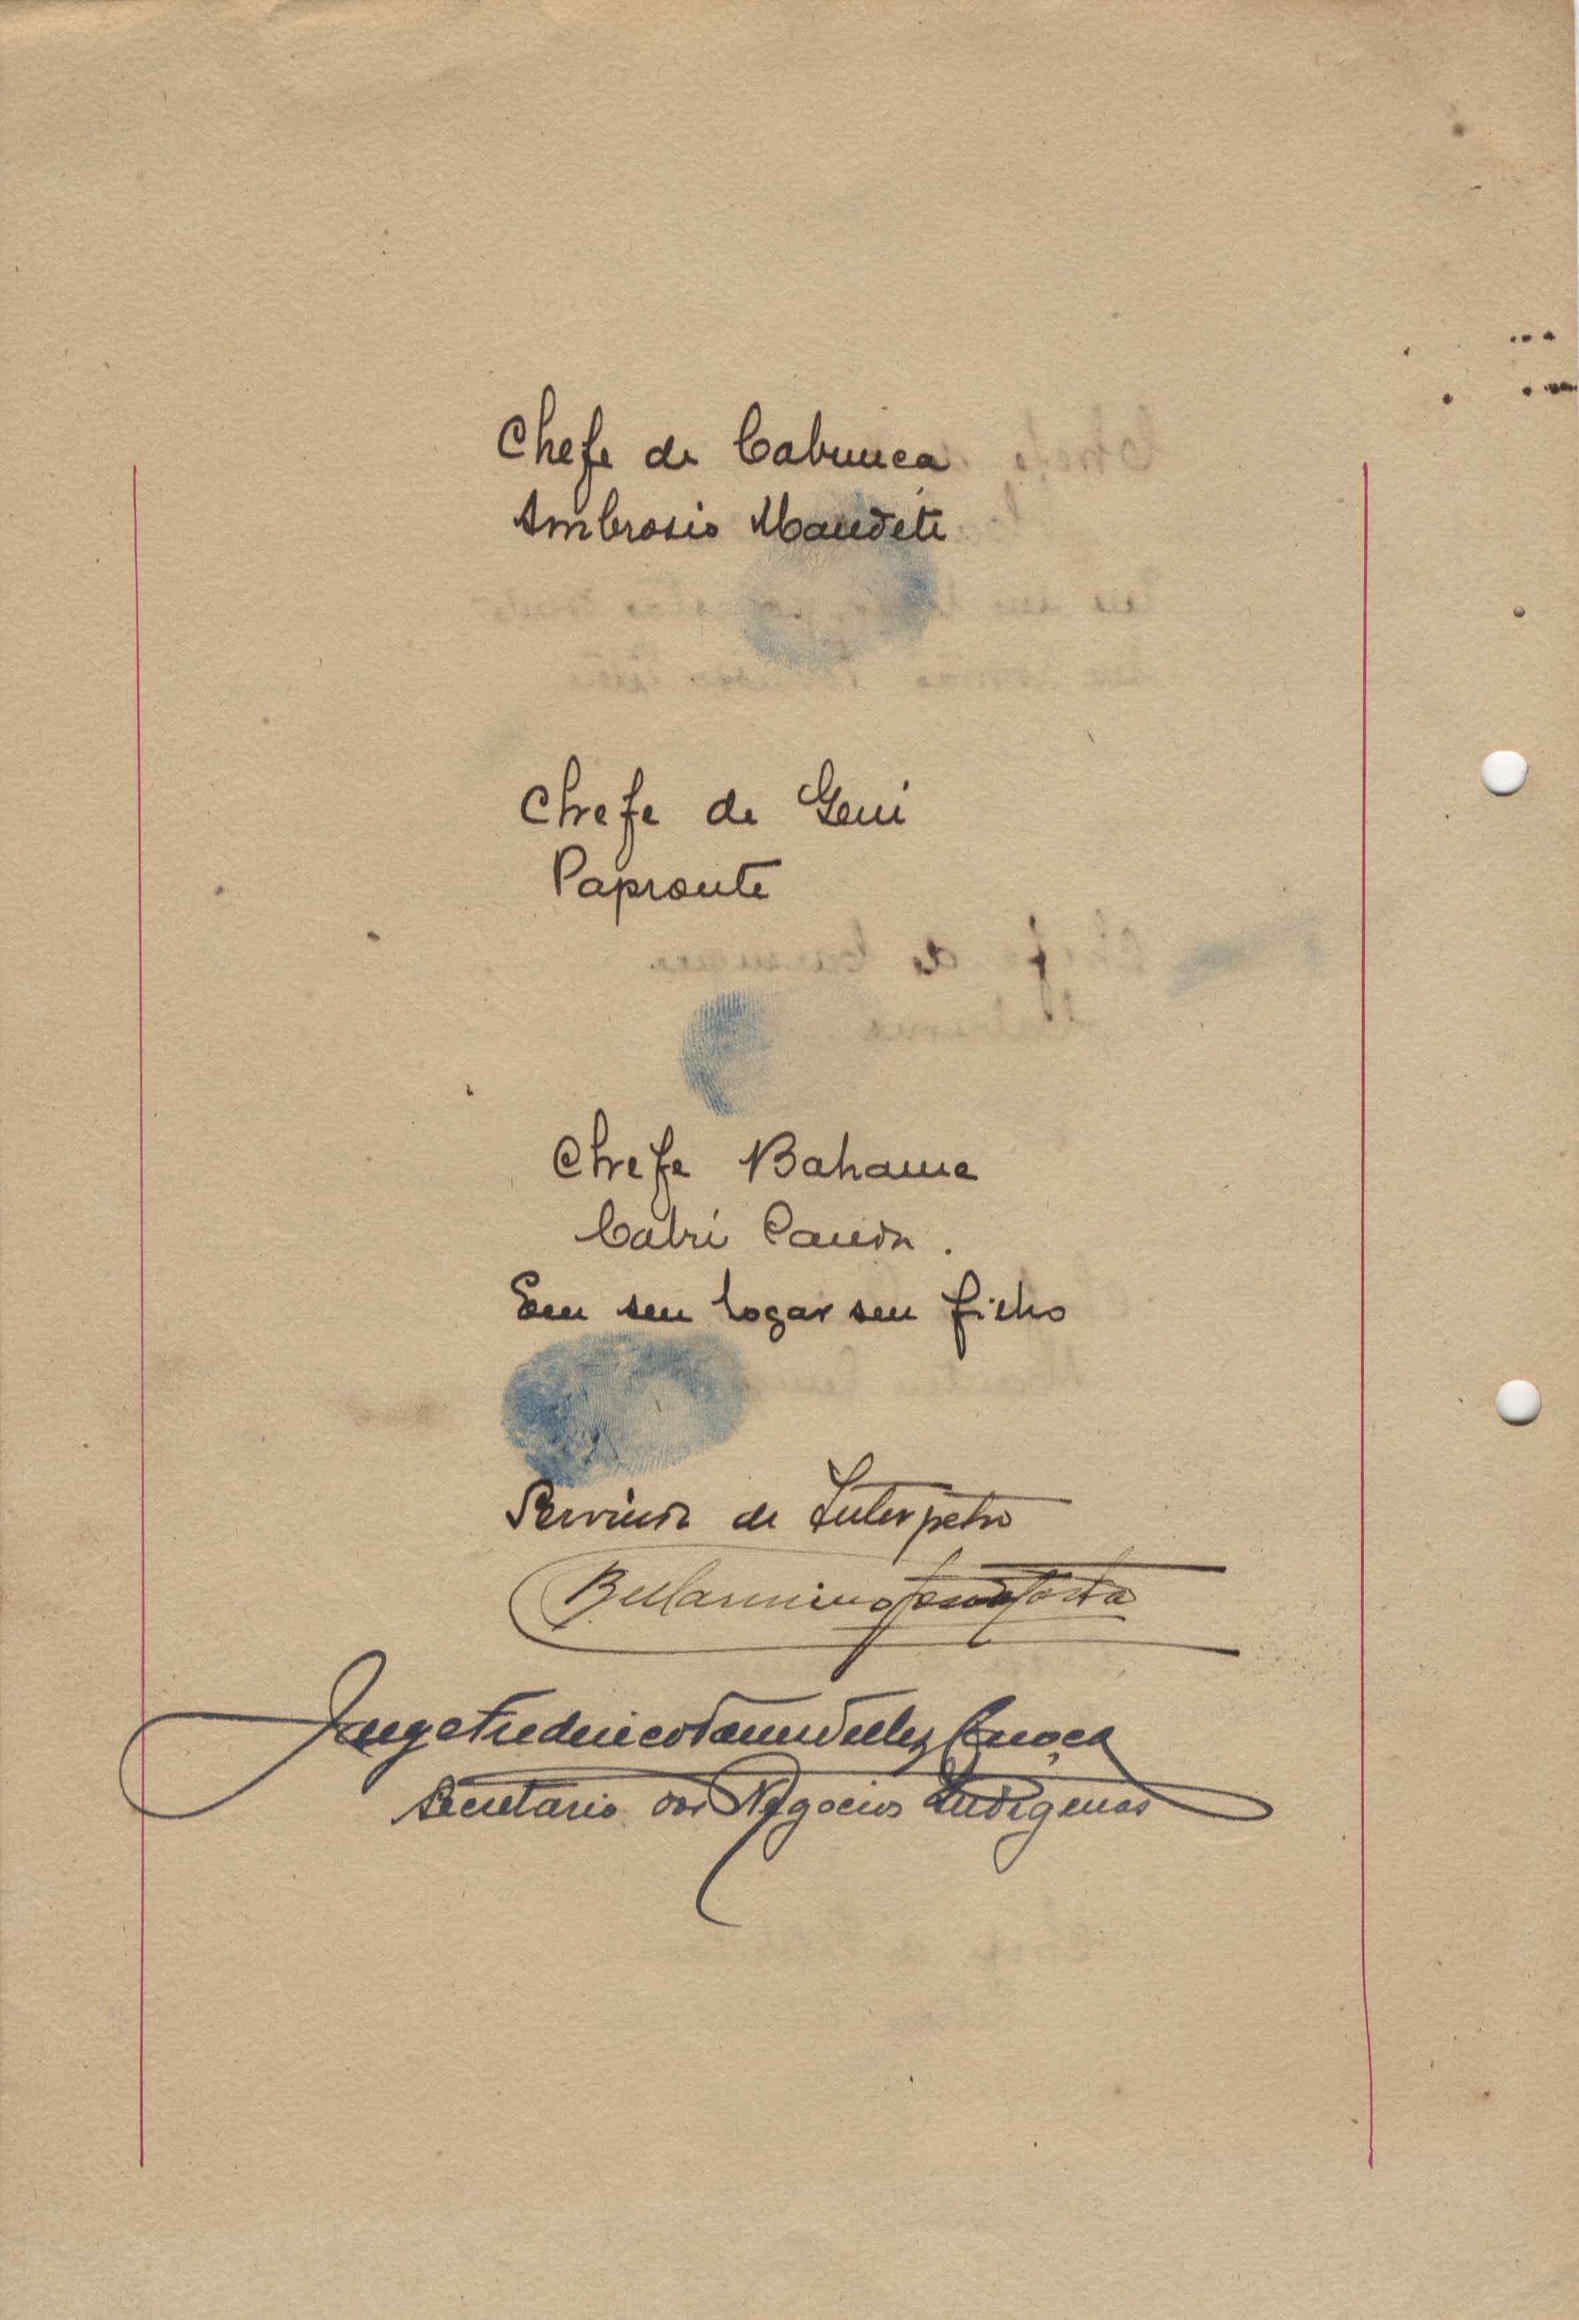 Chefe de Cabumca
Ambrosio Mandeti
Chefe de Geni
Papronte
Chefe Bahame
Cabri Canda.
Em seu logar seu filho
Servindo de Interpetre
Bellarmino
Jorge Frederico Tellez
Secretario dos Negocios Indigenas